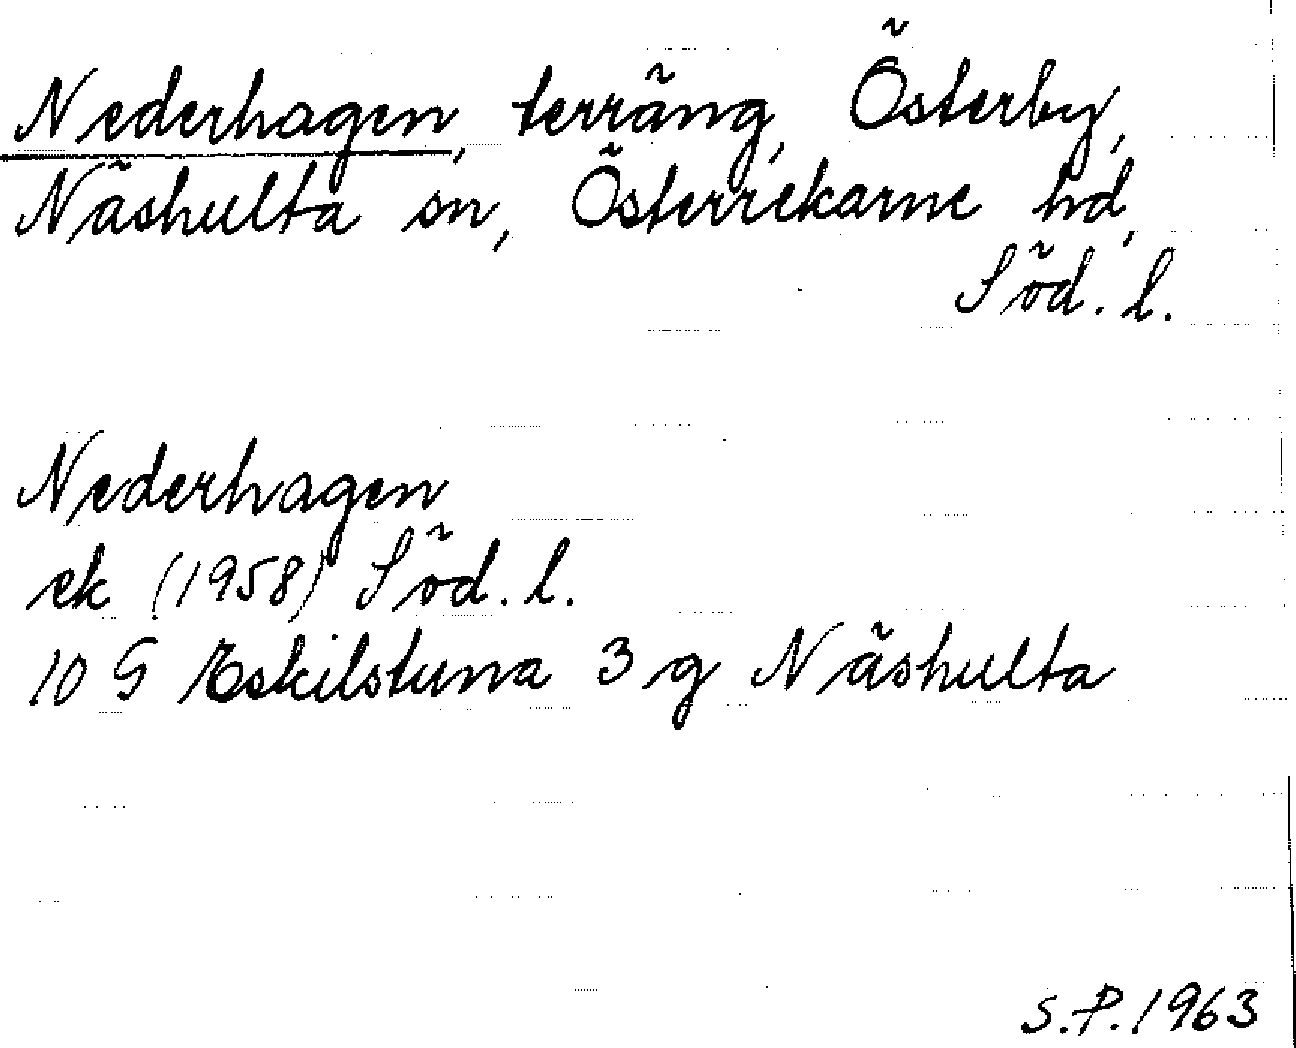 Nederhagen, terräng, Österby,
Näshulta sn, Österrekarne hd,
Söd. l.
Nederhagen
ek (1958) Söd. l.
10 G Eskilstuna 3 g Näshulta
S.P. 1963